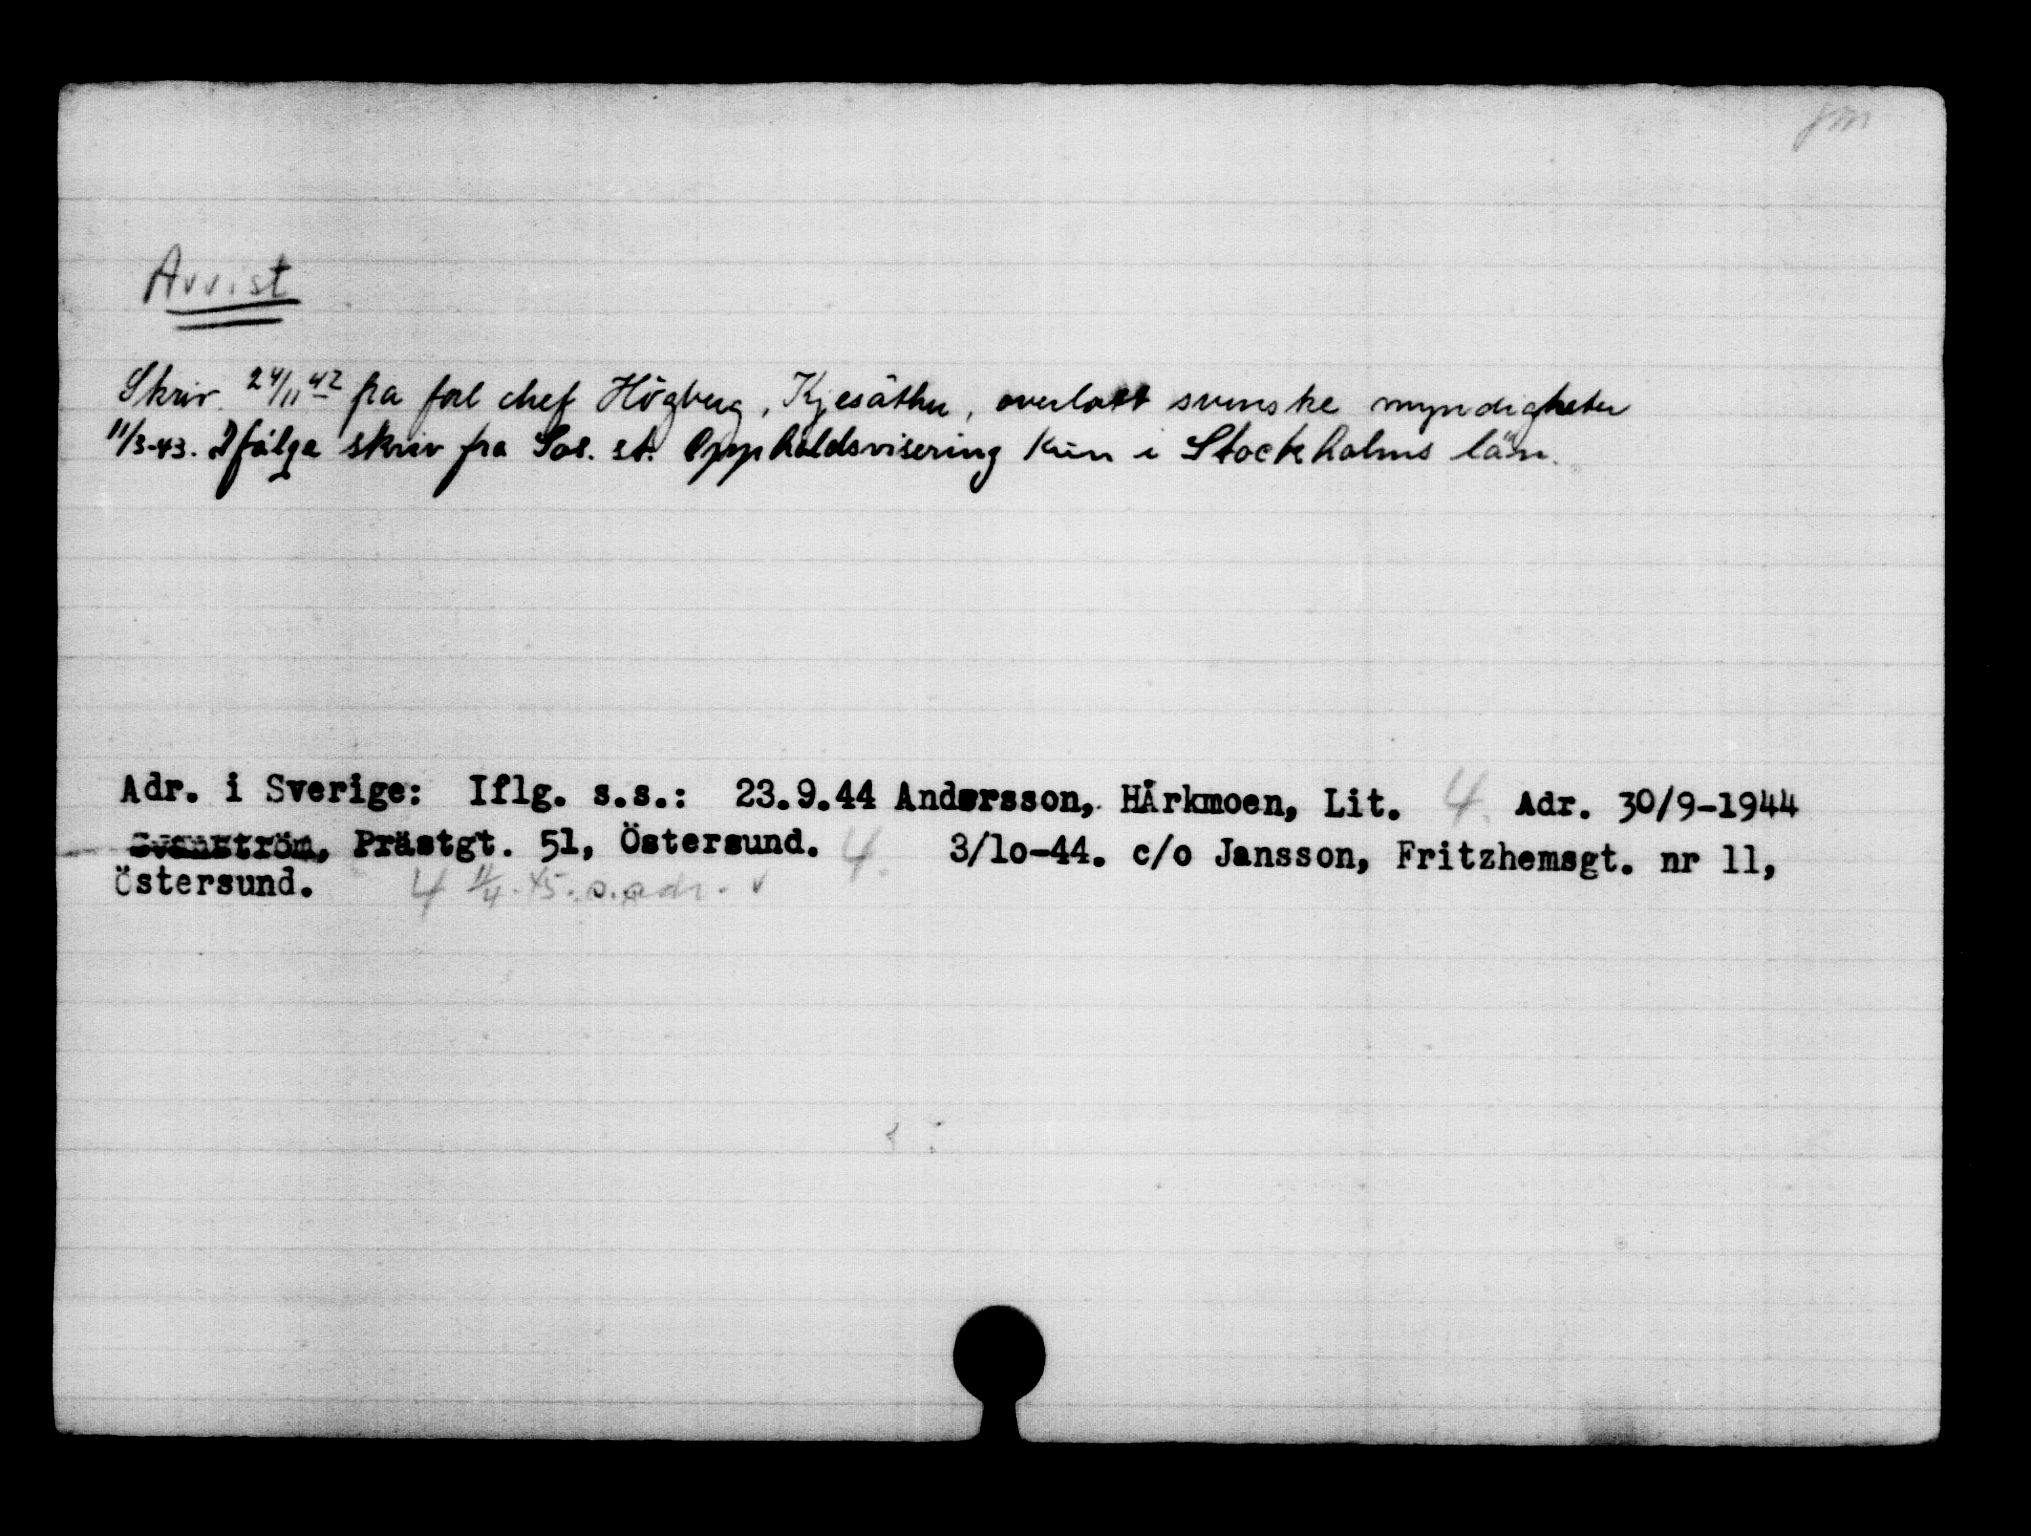 Avvist
Skriv. 24/11 42 fra forl chef Högberg, Kjesäther, overlatt svenske myndigheter
11/3-43. Ifølge skriv fra Sos. st. Oppholdsvisering kun i Stockholms län.
Adr. i Sverige: Iflg. s.s.: 23.9.44 Andersson, HÅrkmoen, Lit. 4. Adr. 30/9-1944
Svanström, Prästgt. 51, Östersund. 4. 3/lo-44. c/o Jansson, Fritzhemsgt. nr 11,
Östersund. 4 11/4.45. s. adr. v